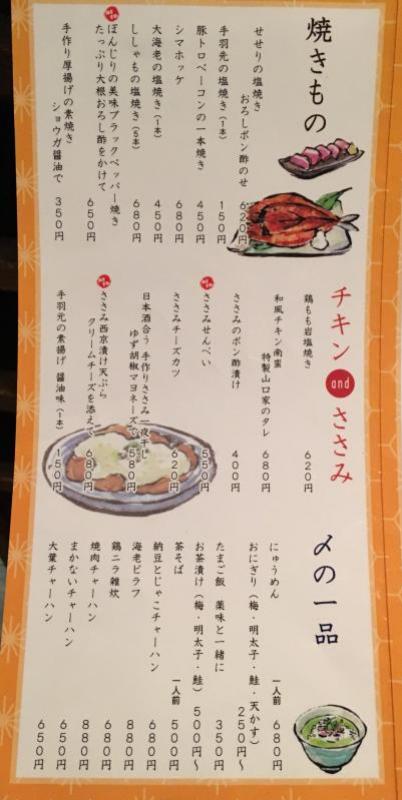 焼きもの
せせりの塩焼き
おろしポン酢のせ 620円
手羽先の塩焼き(1本) 150円
豚トロベーコンの一本焼き 450円
シマホッケ 680円
大海老の塩焼き(1本) 450円
ししゃもの塩焼き(5本) 680円
ぼんじりの美味ブラックペッパー焼き
たっぷり大根おろし酢をかけて 650円
手作り厚揚げの素焼き
ショウガ醤油で 350円
チキン and ささみ
鶏もも岩塩焼き 620円
和風チキン南蛮
特製山口家のタレ 680円
ささみのポン酢漬け 400円
ささみせんべい 550円
ささみチーズカツ 620円
日本酒合う 手作りささみ一夜干し
ゆず胡椒マヨネーズで 580円
ささみ西京漬け天ぷら
クリームチーズを添えて 680円
手羽元の素揚げ 醤油味(1本) 150円
〆の一品
にゅうめん 一人前 680円
おにぎり(梅・明太子・鮭・天かす) 250円〜
たまご飯 薬味と一緒に 350円
お茶漬け(梅・明太子・鮭) 500円〜
茶そば 一人前 500円
納豆とじゃこチャーハン 680円
海老ピラフ 680円
鶏ニラ雑炊 880円
焼肉チャーハン 880円
まかないチャーハン 650円
大葉チャーハン 650円